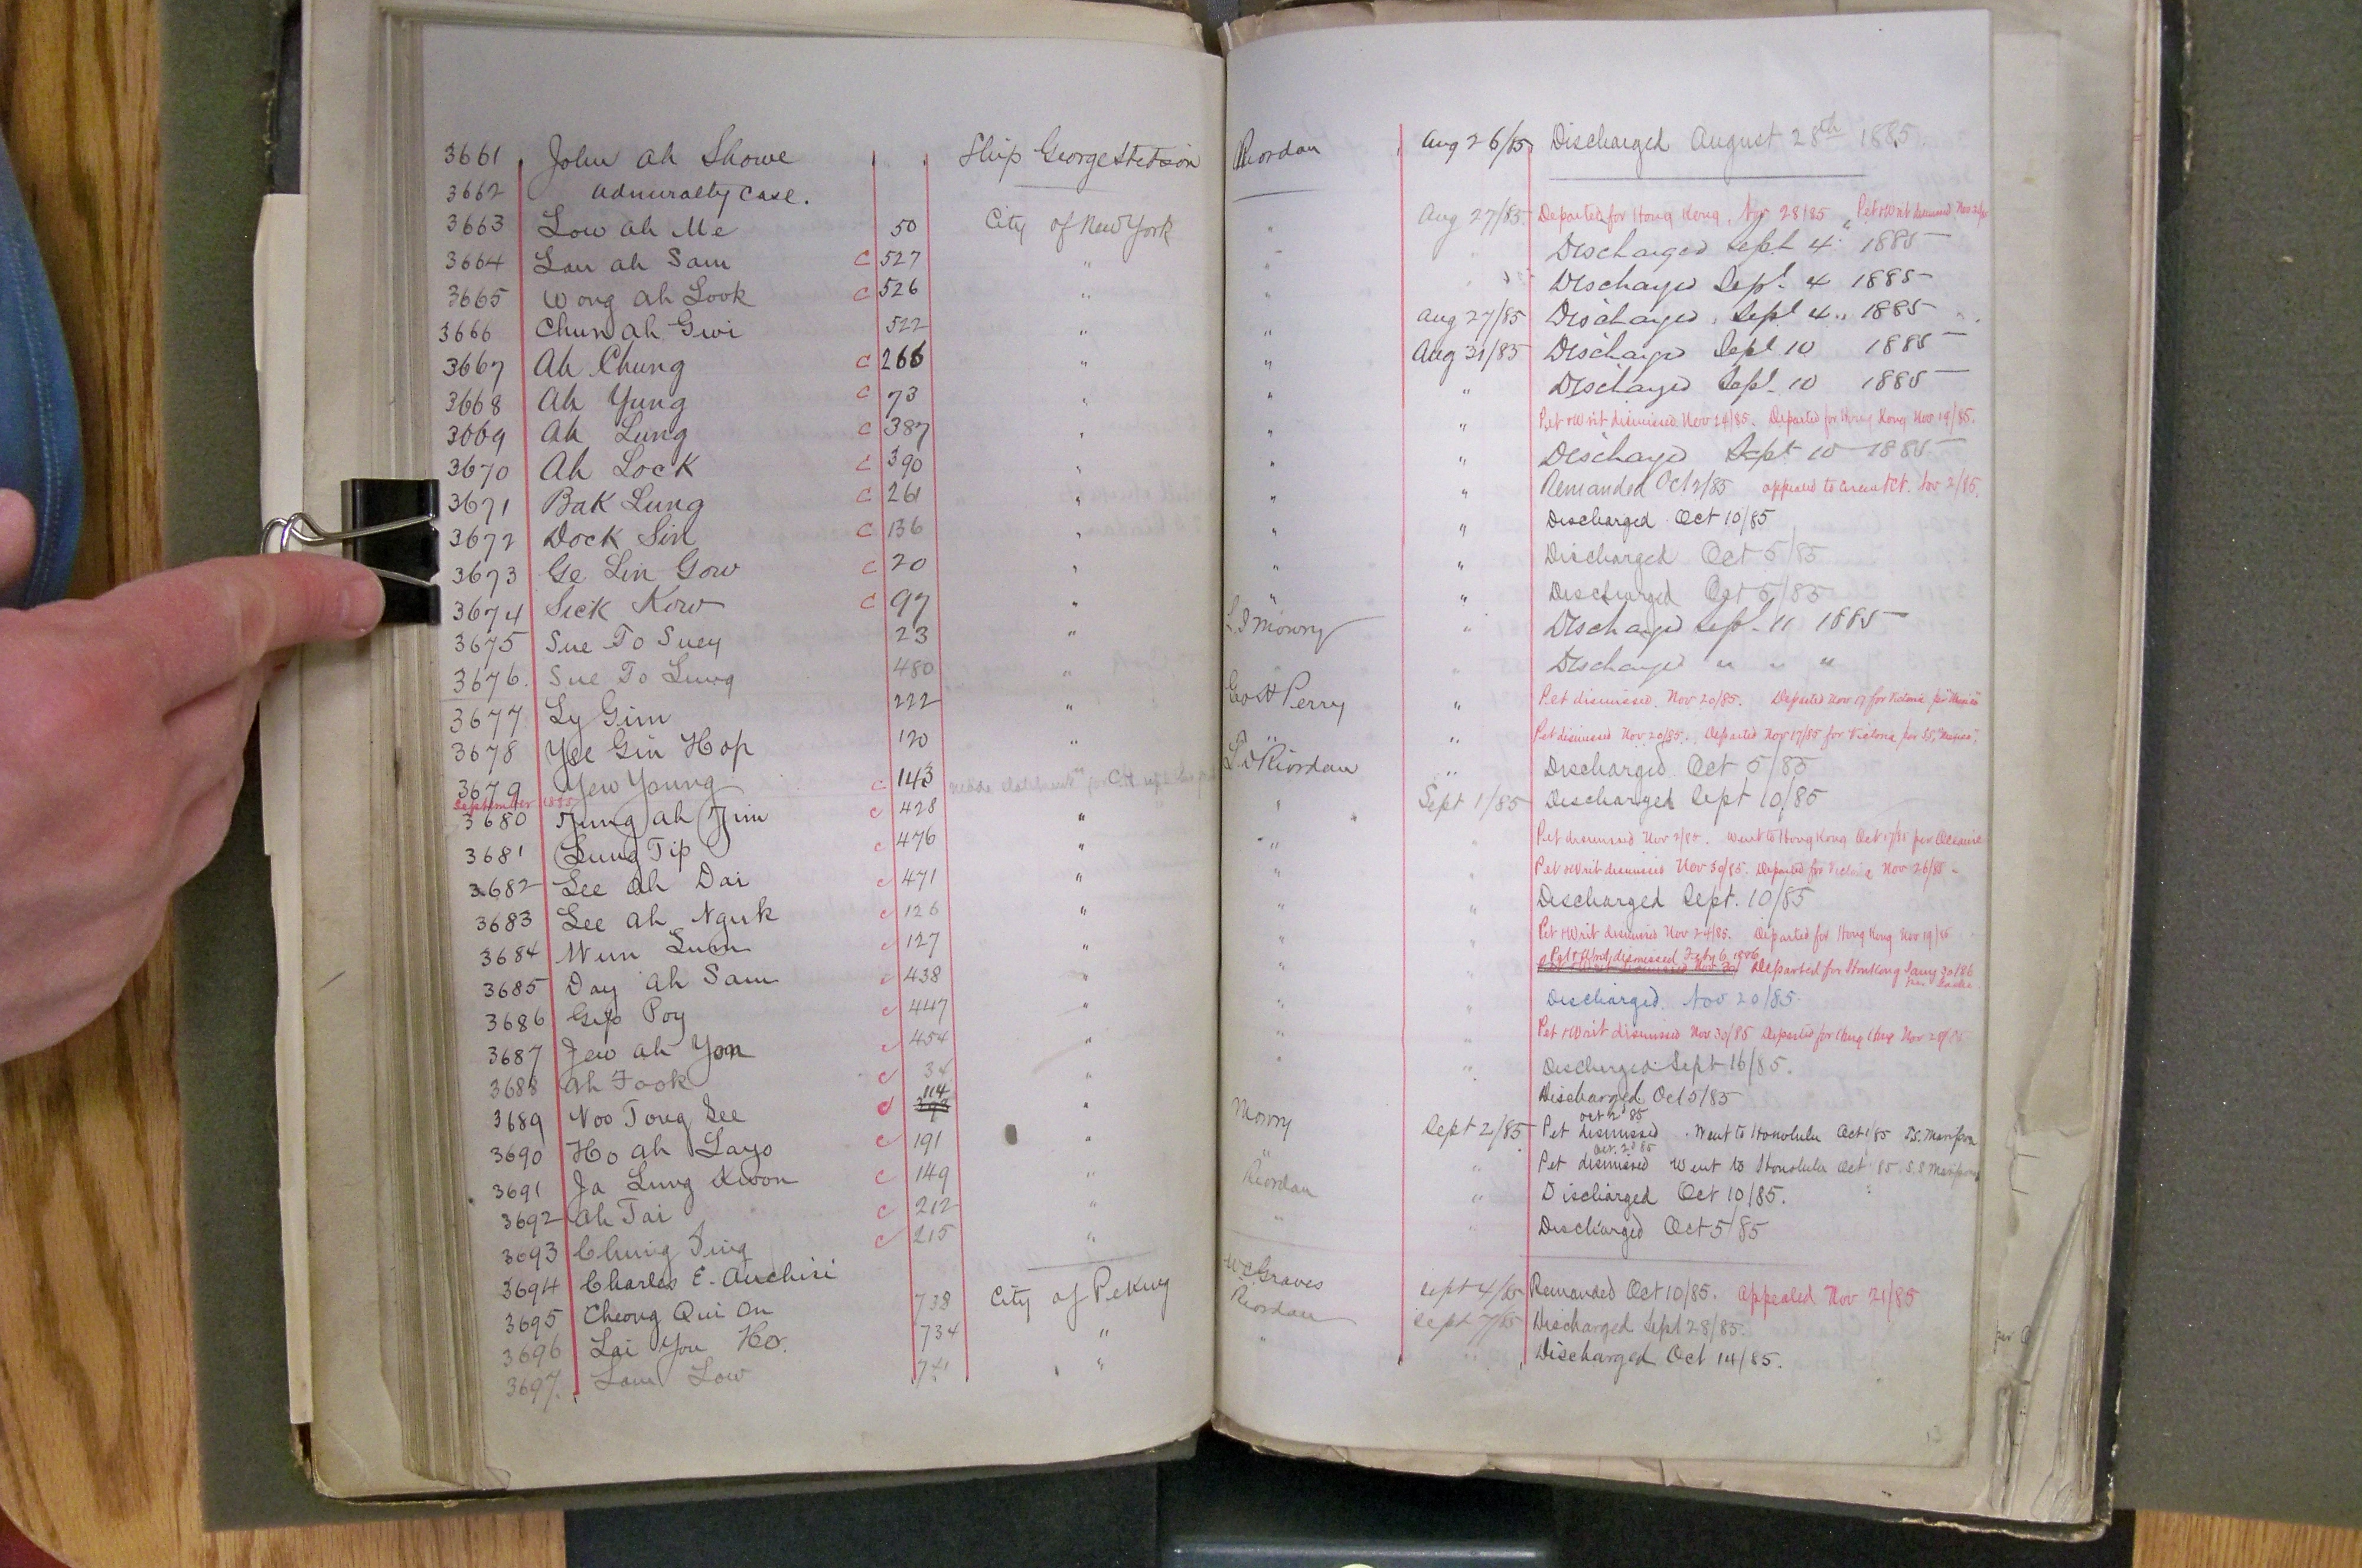 3661 John Ah Showe Ship George Stetson Riordan Aug 26/85 Discharged August 28th 1885.
3662 Admiralty Case.
3663 Low Ah Me 50 City of New York " Aug 27/85 Departed for Hong Kong, Nov 28/85 Pet & Writ dismissed
3664 Lau Ah Sam C 527 " " " Discharged Sept 4. 1885
3665 Wong Ah Look C 526 " " " Discharged Sept. 4 1885
3666 Chun Ah Gwi 522 " " Aug 27/85 Discharged, Sept 4., 1885
3667 Ah Chung C 266 " " Aug 31/85 Discharged Sept 10 1885
3668 Ah Yung C 73 " " " Discharged Sept. 10 1885
3669 Ah Lung C 387 " " " Pet & Writ dismissed Nov 24/85. Departed for Hong Kong Nov 19/85.
3670 Ah Lock C 390 " " " Discharged Sept 10 1885
3671 Bak Lung C 261 " " " Remanded Oct 2/85 appealed to Circuit Ct. Nov 2/85.
3672 Dock Sin C 136 " " " Discharged Oct 10/85
3673 Ge Lin Gow C 20 " " " Discharged Oct 5/85
3674 Sick Kow C 97 " " " Discharged Oct 5/85
3675 Sue To Suey 23 " L I Mowry " Discharged Sept. 11 1885
3676. Sue To Lung 480 " " Discharged " " "
3677 Ly Gim 222 " Geo H Perry " Pet dismissed. Nov 20/85. Departed Nov 17 for Victoria per "Mexico"
3678 Yee Gin Hop 120 " " " Pet dismissed Nov 20/85. Departed Nov 17/85 for Victoria per SS. "Mexico".
3679 Yew Young C 143 Riordan " Discharged. Oct 5/85
September 1885
3680 Jung Ah Jim C 428 " " Sept 1/85 Discharged Sept 10/85
3681 Lung Tip C 476 " " " Pet dismissed Nov 2/85. Went to Hong Kong Oct 17/85 per Oceanic
3682 Lee Ah Dai C 471 " " " Pet & Writ dismissed Nov 30/85. Departed for Victoria Nov 26/85.
3683 Lee Ah Nguk C 126 " " " Discharged Sept. 10/85
3684 Wun Lum C 127 " " " Pet & Writ dismissed Nov 24/85. Departed for Hong Kong Nov 19/85
3685 Day Ah Sam C 438 " " " Pet & Writ dismissed Feby 6 1886 Departed for Hon Kong Jany 30/86
3686 Gip Poy C 447 " " " Discharged. Nov 20/85.
3687 Jew Ah Yon C 454 " " " Pet & Writ dismissed Nov 30/85 Departed for Nov 28/85
3688 Ah Fook C " " " Discharged Sept 16/85.
3689 Noo Tong See C 114 " Discharged Oct 5/85
3690 Ho Ah Layo C 191 " Mowry Sept 2/85 Pet dismissed Oct 2d 85. Went to Honolulu Oct 1/85 S.S. Mariposa
3691 Ja Lung Kwon C 149 " " " Pet dismissed Oct. 2d 85 Went to Honolulu Oct 85. S.S Mariposa
3692 Ah Tai C 212 " Riordan " Discharged Oct 10/85.
3693 Chung Ting C 215 " " " Discharged Oct 5/85
3694 Charles E. Auchisi
3695 Cheong Qui On 738 City of Peking W C Graves Sept 4/85 Remanded Oct 10/85. Appealed Nov 21/85
3696 Lai You Ho. 734 " Riordan Sept 7/85 Discharged Sept 28/85.
3697. Lam Low 741 " " " Discharged Oct 14/85.